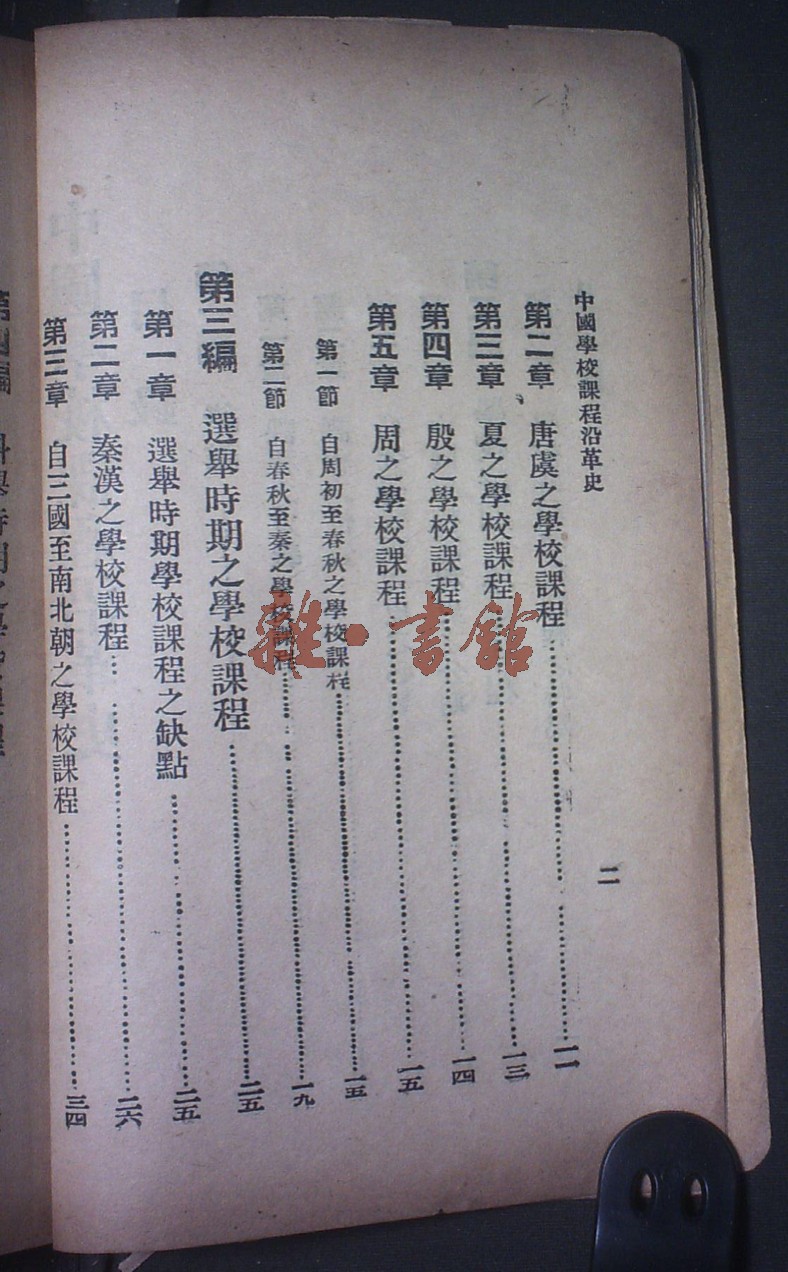 中國學校課程沿革史
二
第二章 唐虞之學校課程 一一
第三章 夏之學校課程 一三
第四章 殷之學校課程 一四
第五章 周之學校課程 一五
第一節 自周初至春秋之學校課程 一五
第二節 自春秋至秦之學校課程 一九
第三編 選舉時期之學校課程 二五
第一章 選舉時期學校課程之缺點 二五
第二章 秦漢之學校課程 二六
第三章 自三國至南北朝之學校課程 三四
雜·書館